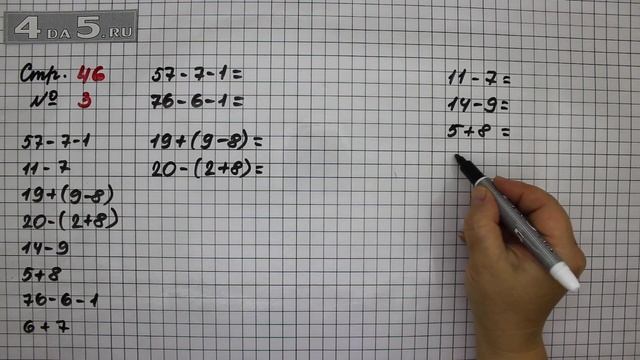 4 да 5.ru
Стр. 46
№ 3
57-7-1
11-7
19+(9-8)
20-(2+8)
14-9
5+8
76-6-1
6+7
57-7-1=
76-6-1=
19+(9-8)=
20-(2+8)=
11-7=
14-9=
5+8=